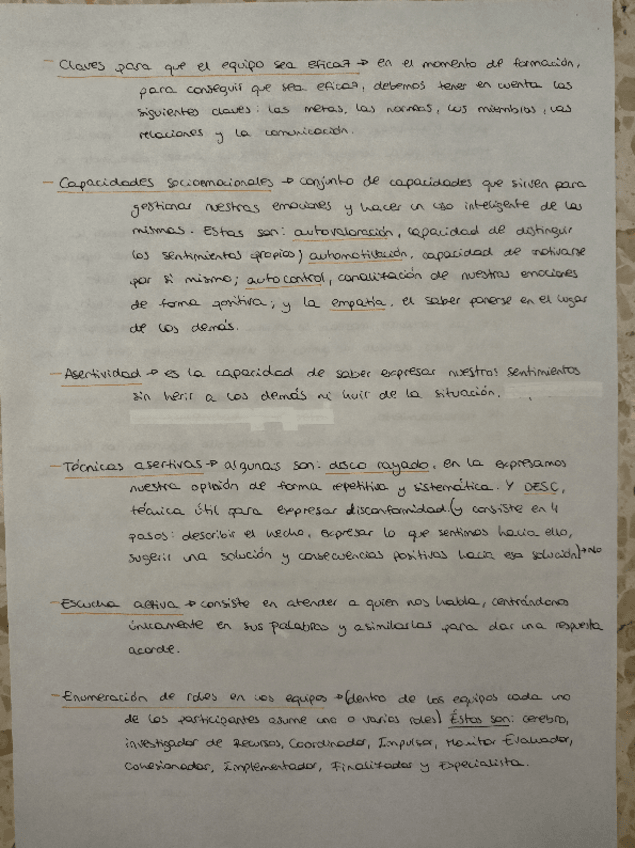 - Claves para que el equipo sea eficaz → en el momento de formación,
para conseguir que sea eficaz, debemos tener en cuenta las
siguientes claves: las metas, las normas, los miembros, las
relaciones y la comunicación.
- Capacidades socioemocionales → conjunto de capacidades que sirven para
gestionar nuestras emociones y hacer un uso inteligente de las
mismas. Estas son: autovaloración, capacidad de distinguir
los sentimientos propios; automotivación, capacidad de motivarse
por si mismo; autocontrol, canalización de nuestras emociones
de forma positiva; y la empatía, el saber ponerse en el lugar
de los demás.
- Asertividad → es la capacidad de saber expresar nuestros sentimientos
sin herir a los demás ni huir de la situación.
- Técnicas asertivas → algunas son: disco rayado, en la expresamos
nuestra opinión de forma repetitiva y sistemática. Y DESC,
técnica útil para expresar disconformidad. (y consiste en 4
pasos: describir el hecho, expresar lo que sentimos hacia ello,
sugerir una solución y consecuencias positivas hacia esa solución) → No
- Escucha activa → consiste en atender a quien nos habla, centrándonos
únicamente en sus palabras y asimilarlas para dar una respuesta
acorde.
- Enumeración de roles en los equipos → (dentro de los equipos cada uno
de los participantes asume uno o varios roles) Éstos son: cerebro,
investigador de Recursos, Coordinador, Impulsor, Monitor Evaluador,
Cohesionador, Implementador, Finalizador y Especialista.